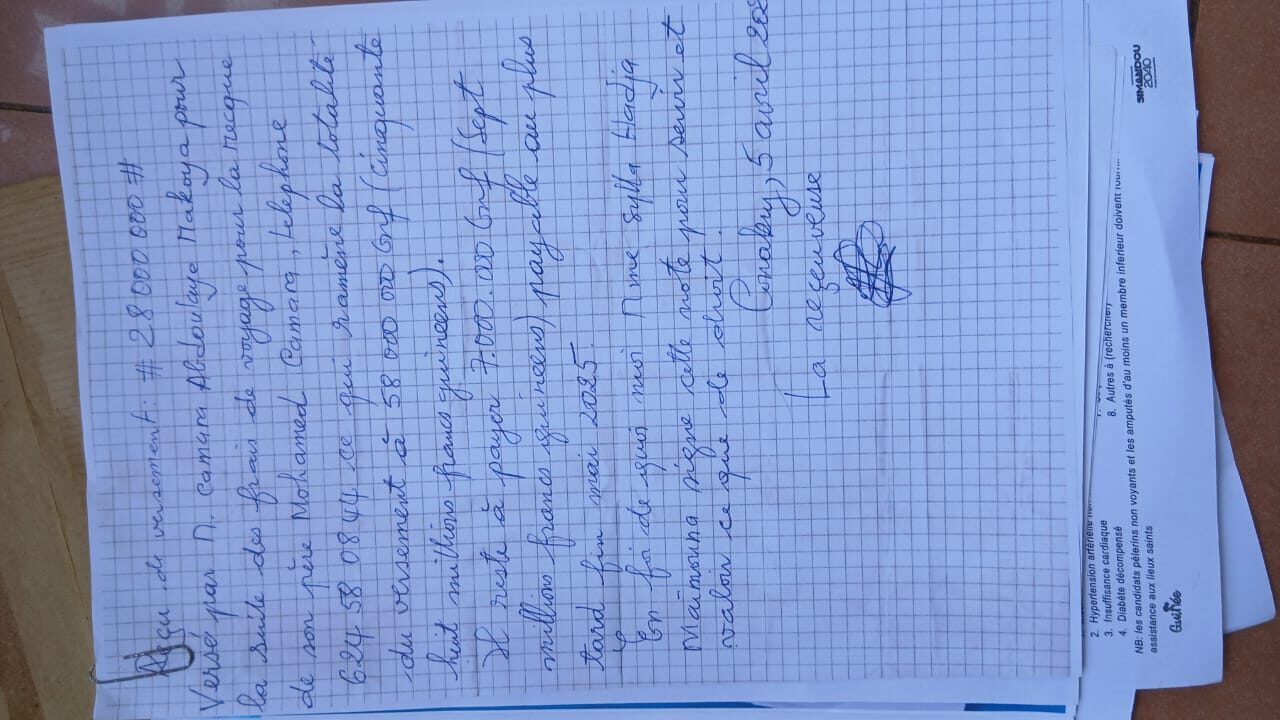 Reçu de versement: # 28 000 000 #
Versé par M. Camara Abdoulaye Makoya pour
la suite des frais de voyage pour la mecque
de son père Mohamed Camara, telephone
624 58 08 44 ce qui ramème la totalité
du versement à 58 000 000 Gnf (cinquante
huit millions francs guineens).
Il reste à payer 7.000.000 Gnf (Sept
millions francs guineens) payable au plus
tard fin mai 2025.
En foi de quoi moi Mme Sylla Hadja
Maïmouna signe cette note pour servir et
valoir ce que de droit.
Conakry, 5 avril
La reçeuveuse
2. Hypertension artérielle
3. Insuffisance cardiaque
4. Diabète décompensé
8. Autres à (rechercher)
NB: les candidats pèlerins non voyants et les amputés d'au moins un membre inferieur doivent
assistance aux lieux saints
Guinée
SIMANDOU
2040